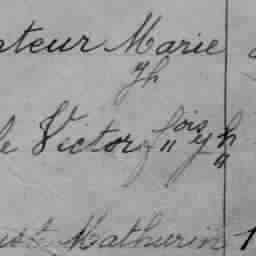 ateur Marie
yh
le Victor fois yh
ust Mathurin 1